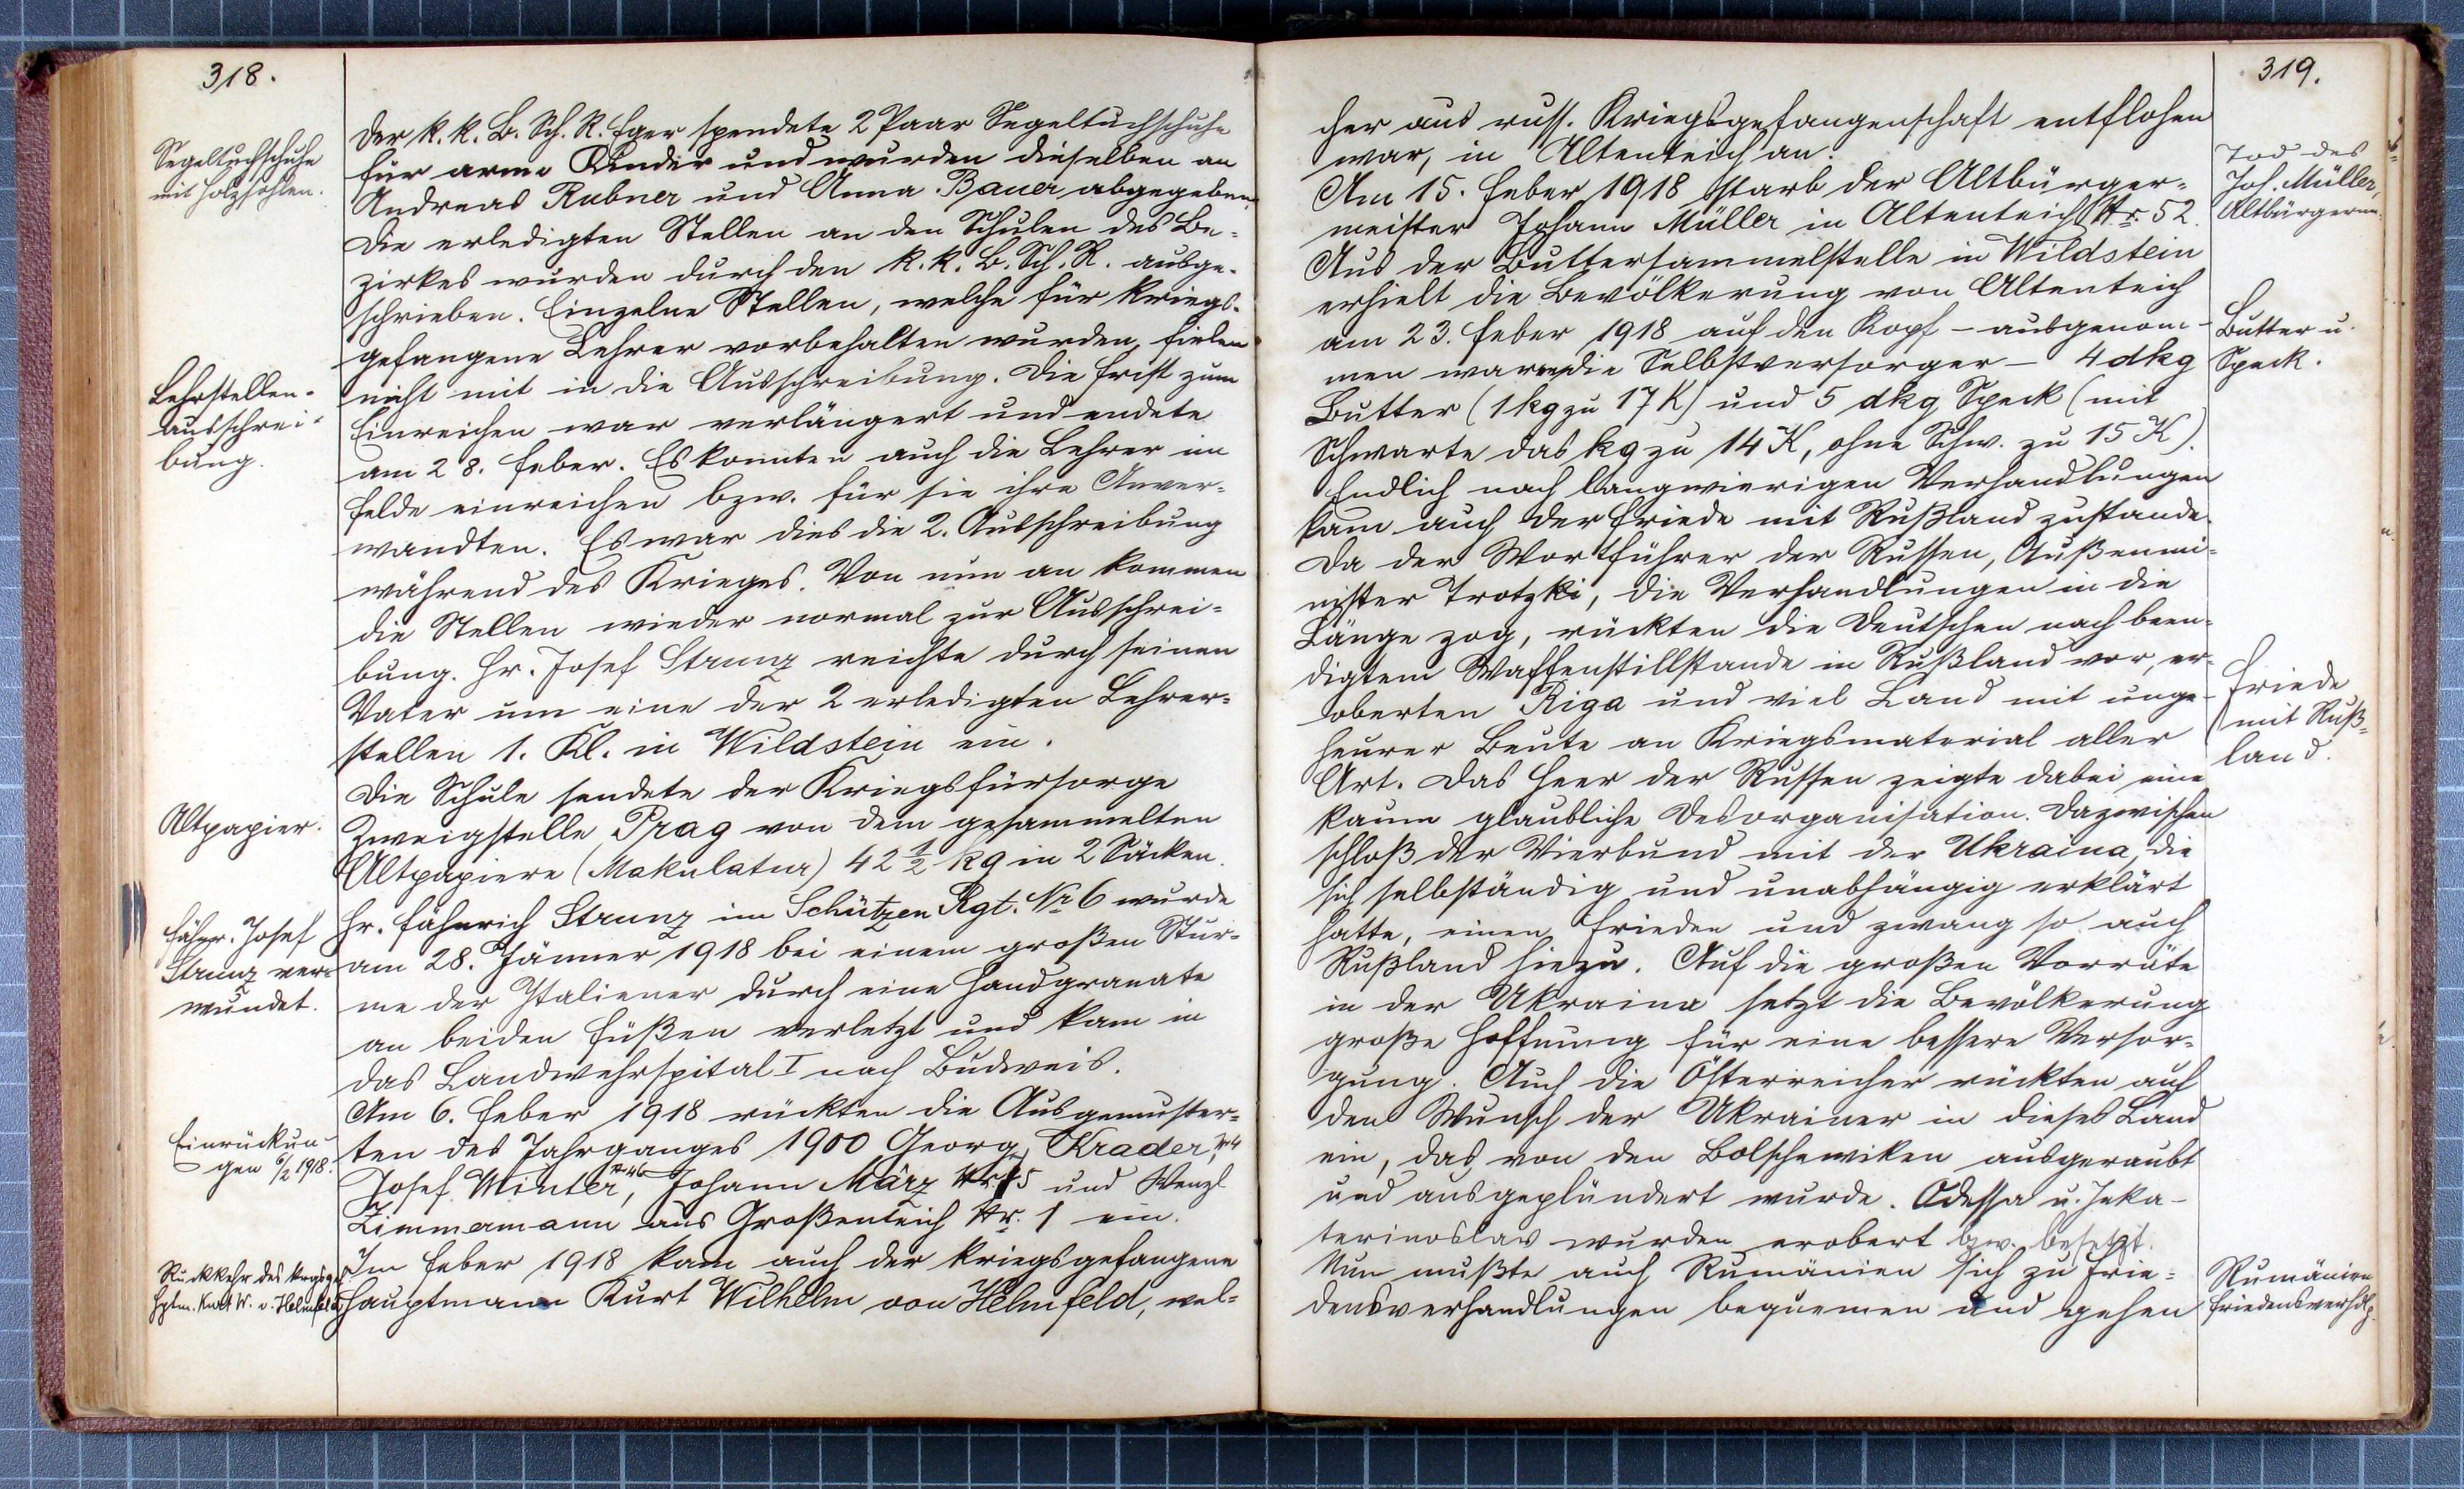 318.
Segeltuchschuhe
mit Holzsohlen.
Der k. k. B. Sch. R. Eger spendete 2 Paar Segeltuchschuhe
für arme Kinder und wurden dieselben an
Andreas Rubner und Anna Bauer abgegeben.
Die erledigten Stellen an den Schulen des Be-
zirkes wurden durch den k. k. B. Sch. R. ausge-
schrieben. Einzelne Stellen, welche für kriegs-
gefangene Lehrer vorbehalten wurden, fielen
nicht mit in die Ausschreibung. Die Frist zum
Lehrstellen-
ausschrei-
bung.
Einreichen war verlängert und endete
am 28. Feber. Es konnten auch die Lehrer im
Felde einreichen bzw. für sie ihre Anver-
wandten. Es war dies die 2. Ausschreibung
während des Krieges. Von nun an kommen
die Stellen wieder normal zur Ausschrei-
bung. Hr. Josef Strunz reichte durch seinen
Vater um eine der 2 erledigten Lehrer-
stellen 1. Kl. in Wildstein ein.
Die Schule sendete der Kriegsfürsorge
Altpapier.
Zweigstelle Prag von dem gesammelten
Altpapiere (Makulatur) 42 1/2 kg in 2 Säcken.
Fähnr. Josef
Strunz ver-
wundet.
Hr. Fähnrich Strunz im Schützen Rgt. Nr 6 wurde
am 28. Jänner 1918 bei einem großen Stur-
me der Italiener durch eine Handgranate
an beiden Füßen verletzt und kam in
das Landwehrspital I nach Budweis.
Am 6. Feber 1918 rückten die Ausgemuster-
Einrückun-
gen 6/2 1918.
ten des Jahrganges 1900 Georg Krader, Nr 4
Josef Winter Nr 46, Johann März Nr. 15 und Wenzl
Zimmermann aus Großenteich Nr. 1 ein.
Rückkehr des krgsgef.
Hptm. Kurt W. v. Helmfeld
Im Feber 1918 kam auch der kriegsgefangene
Hauptmann Kurt Wilhelm von Helmfeld, wel-
319.
cher aus russ. Kriegsgefangenschaft entflohen
war, in Altenteich an.
Tod des
Joh. Müller,
Altbürgerm.
Am 15. Feber 1918 starb der Altbürger-
meister Johann Müller in Altenteich Nr. 52.
Aus der Buttersammelstelle in Wildstein
erhielt die Bevölkerung von Altenteich
am 23. Feber 1918 auf den Kopf - ausgenom-
men waren die Selbstversorger - 4 dkg
Butter u.
Speck.
Butter (1 kg zu 17 K) und 5 dkg Speck (mit
Schwarte das kg zu 14 K, ohne Schw. zu 15 K).
Endlich nach langwierigen Verhandlungen
kam auch der Friede mit Rußland zustande.
Da der Wortführer der Russen, Außenmi-
nister Trotzki, die Verhandlungen in die
Länge zog, rückten die Deutschen nach been-
digtem Waffenstillstande in Rußland vor, er-
oberten Riga und viel Land mit unge-
Friede
mit Ruß-
land.
heurer Beute an Kriegsmaterial aller
Art. Das Heer der Russen zeigte dabei eine
kaum glaubliche Desorganisation. Dazwischen
schloß der Vierbund mit der Ukraina, die
sich selbständig und unabhängig erklärt
hatte, einen Frieden und zwang so auch
Rußland hiezu. Auf die großen Vorräte
in der Ukraina setzt die Bevölkerung
große Hoffnung für eine bessere Versor-
gung. Auch die Österreicher rückten auf
den Wunsch der Ukrainer in dieses Land
ein, das von den Bolschewiken ausgeraubt
und ausgeplündert wurde. Odessa u. Jeka-
terinoslav wurden erobert bzw. besetzt.
Nun mußte auch Rumänien sich zu Frie-
densverhandlungen bequemen und gehen
Rumänien
Friedensverhdlg.